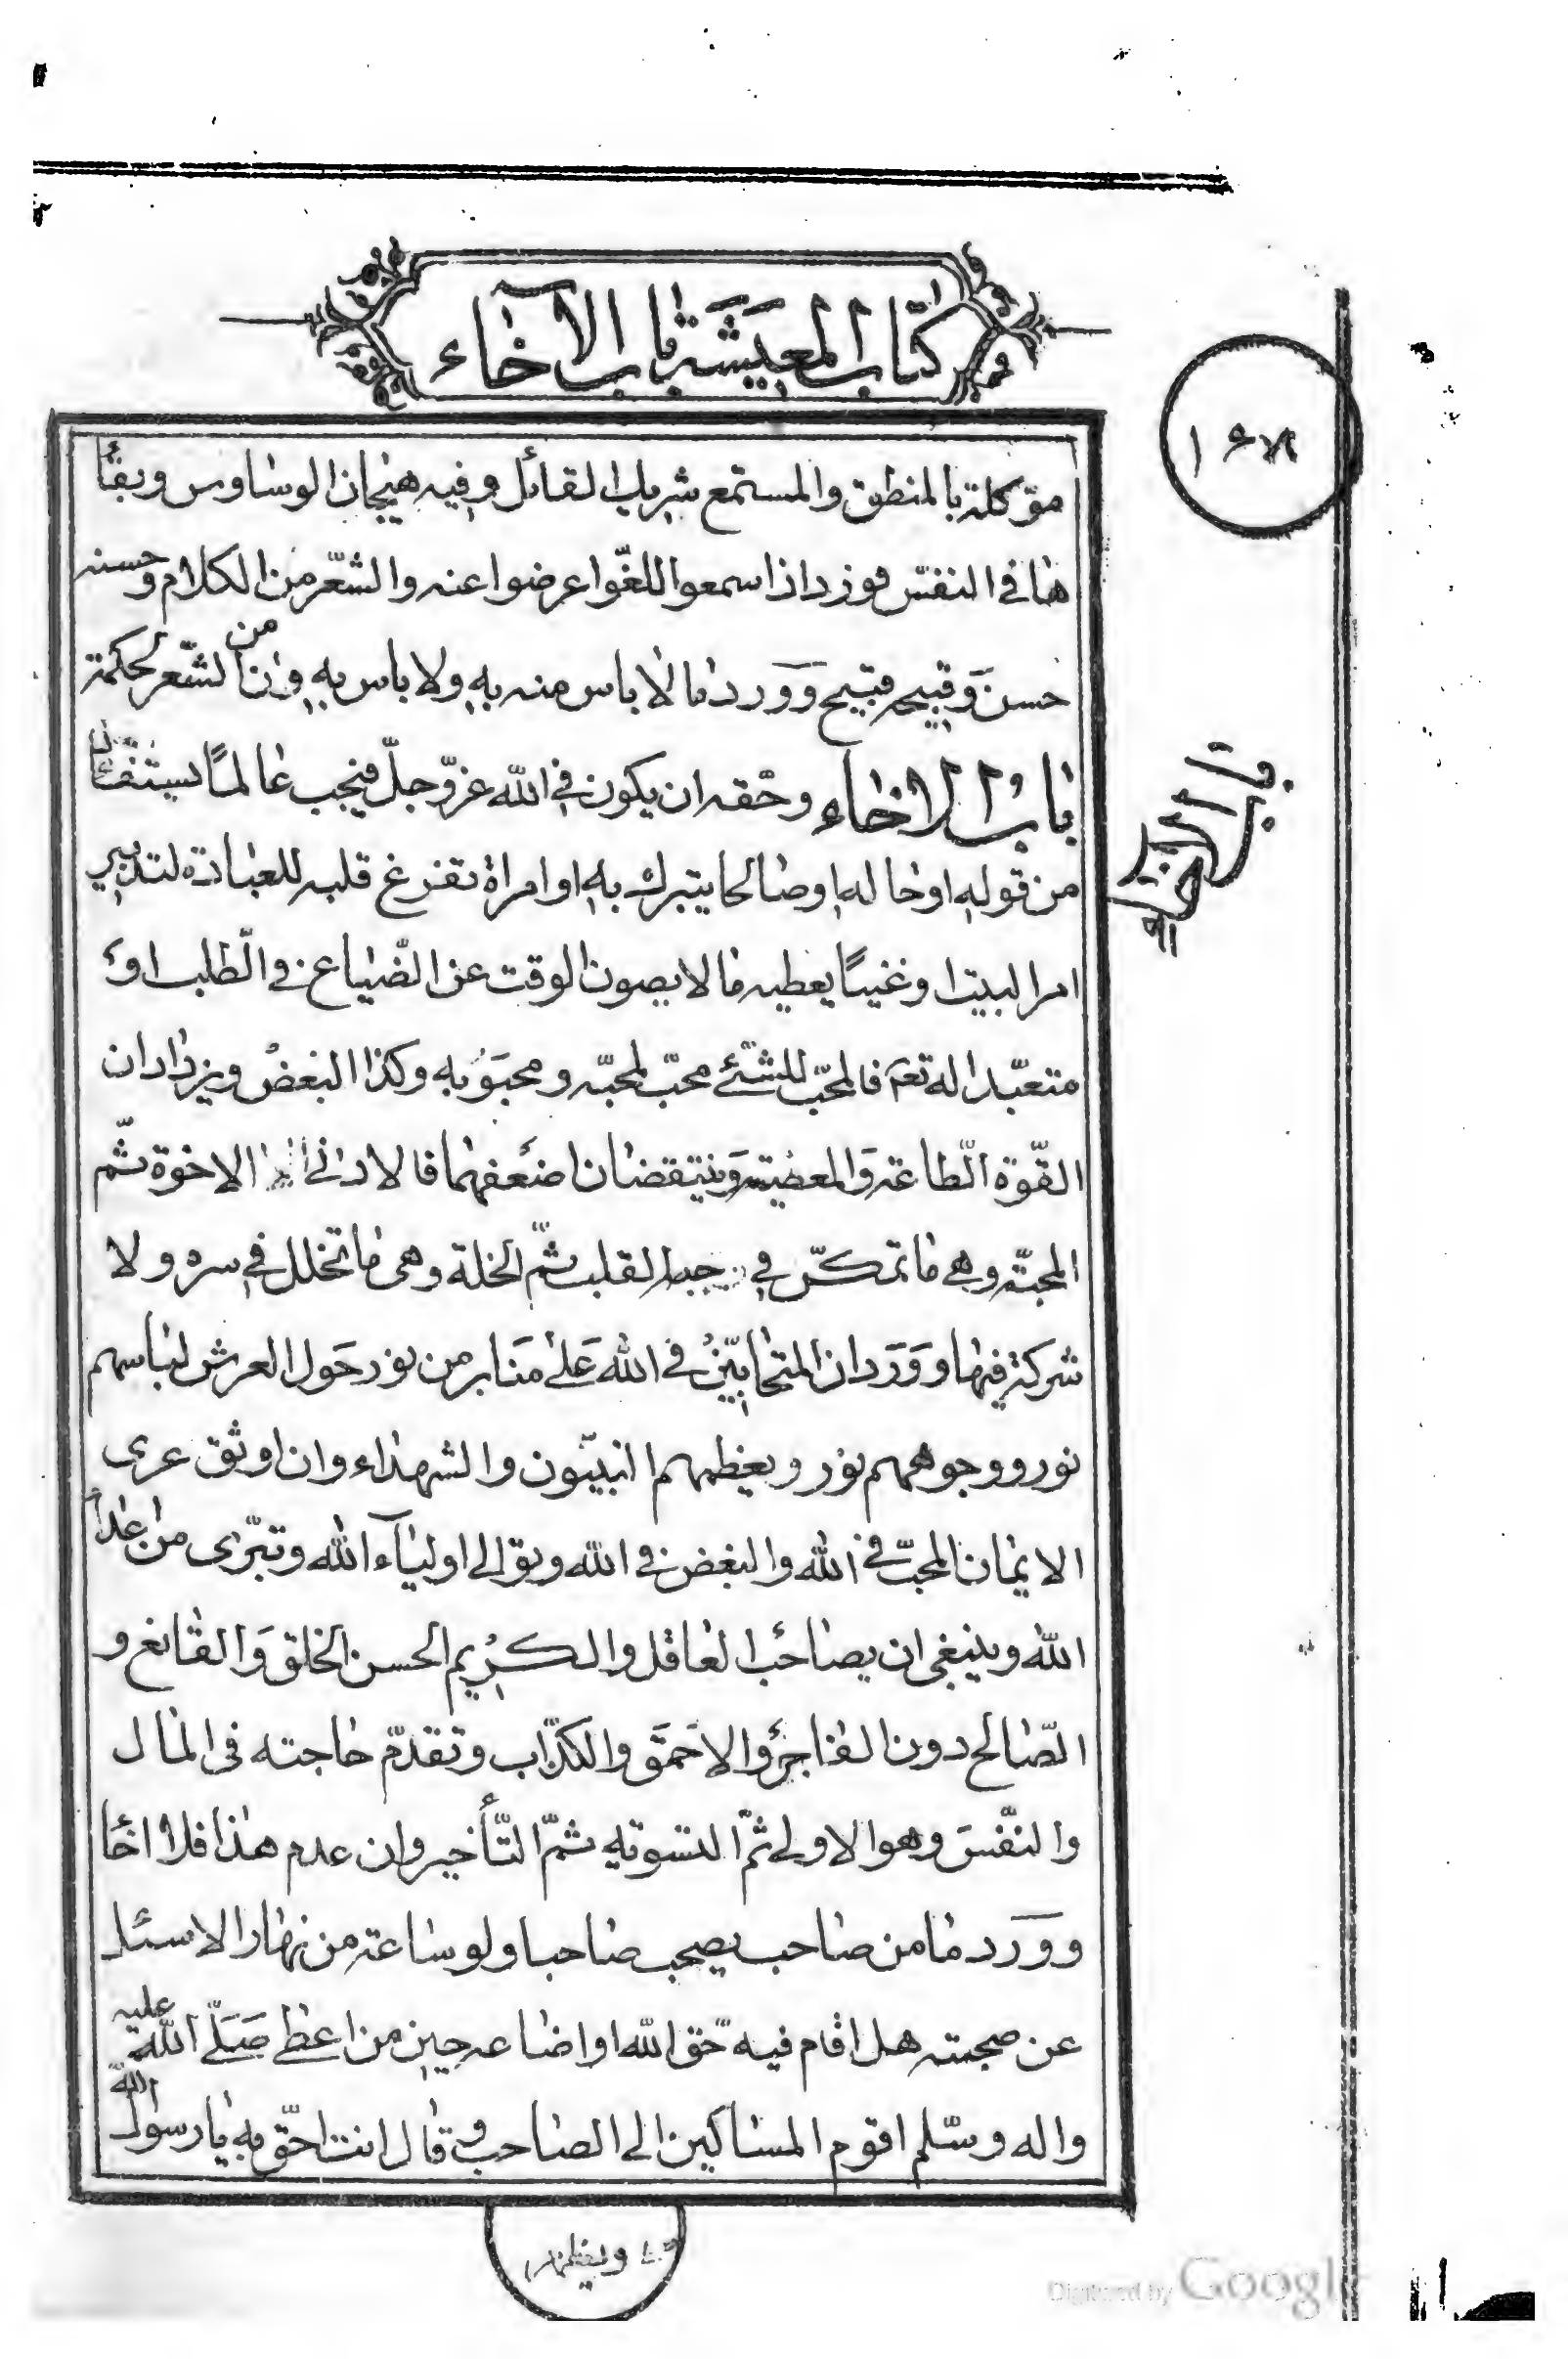 كتاب المعيشة باب الآخاء
موّكلة بالمنطق والمستمع شريك القائل وفيه هيجان الوساوس وبقأ
ها فى النفس فوزد اذا سمعوا اللغّوا عرضوا عنه والشّعر من الكلام وحسنه
حسن وَقبيحه قبيح وَوَرد ما لا باس منه به ولا باس به وان من الشّعر لحكمة
باب الاخاء وحّقه ان يكون فى الله عزّوجلّ فيجب عالمًا يستفّا
من قوله اوحاله اوصالحا يتبرك به او امراة تفزغ قلبه للعبادة لتدبير
امر البيت اوغنيًا يعطيه مالا يصون الوقت عن الضّياع فى الّطلب او
متعبّدا له تعم فالمحبّ للشّئ محبّ لمحبّه ومحبَوبه وكذا البغض ويزدادان
القّوة الّطاعة وَالمعصية وَينتقضان ضعفهما فالادنى الاخوة ثّم
المحبّة وهى ماتمكّن فى القلب ثمّ الخلة وهى ما تخلل فى سره ولا
شركة فيها وَوَرَد ان المتحابّين فى الله عَلى مَنابر من نور حَول العرش لباسهم
نور ووجوههم نور ويغبطهم النبيّون والشهداء وان اوثق عرى
الايمان المحبّ فى الله والبغض فى الله وتوّالى اوليآء الله وتبّرى من اعدأ
الله وينبغى ان يصاحب العاقل والكريم الحسن الخلق وَالقانع و
الصّالح دون الفاجر والاحَمَق والكذّاب وتقدّم حاجته فى المال
والنّفسَ وهو الاولى ثمّ التسوتيه ثمّ التّأخير وان عدم هذا فلا اخا
وَوَرد مامن صاحب يصحب صاحبا ولو ساعة من نهار الا سئل
عن صحبته هل اقام فيه حّق الله او اضاعه حين من اعطى صَلّى الله عليه
واله وسّلم اقوم المساكين الى الصاحب وقال انت احّق به يا رسول الله